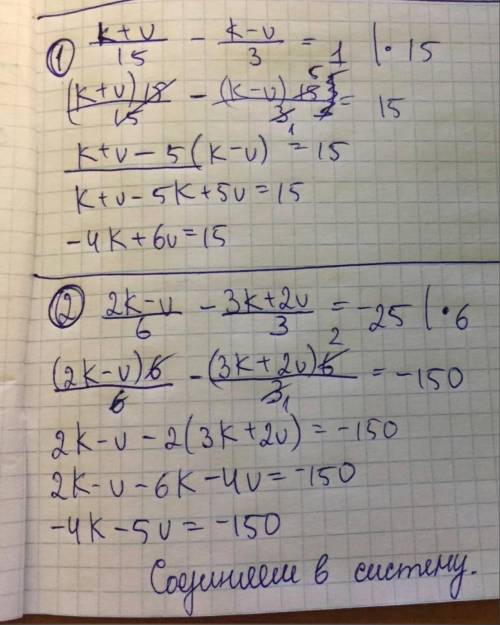 ① (k+v)/15 - (k-v)/3 = 1 | · 15
(k+v)15/15 - (k-v)15 5/3 1 = 15
k+v-5(k-v)=15
k+v-5k+5v=15
-4k+6v=15
② (2k-v)/6 - (3k+2v)/3 = -25 | · 6
(2k-v)6/6 - (3k+2v)6 2/3 1 = -150
2k-v-2(3k+2v)=-150
2k-v-6k-4v=-150
-4k-5v=-150
Соединяем в систему.